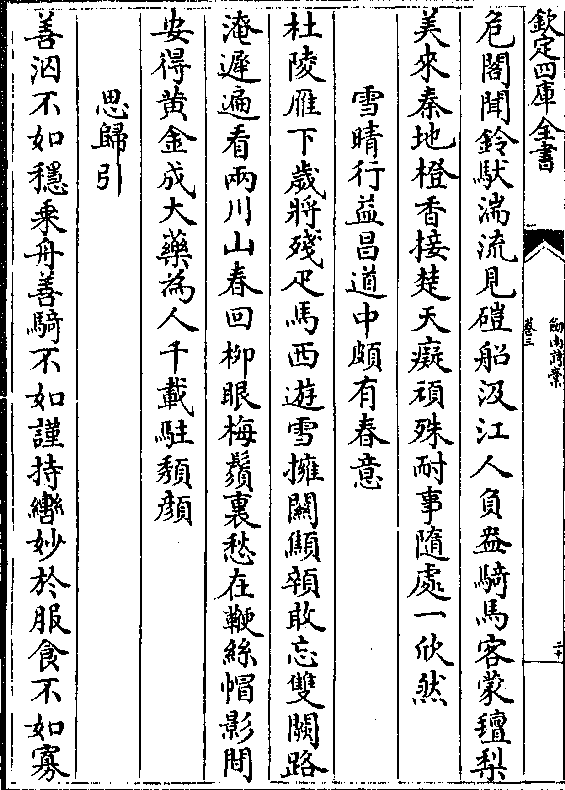 欽定四庫全書
劍南詩稾
卷三
二十
危閣聞鈴馱湍流見磑船汲江人負盎騎馬客蒙氊梨
美來秦地橙香接楚天癡頑殊耐事隨處一欣然
雪晴行益昌道中頗有春意
杜陵雁下歲將殘疋馬西遊雪擁關顦顇敢忘雙闕路
淹遲遍看兩川山春回柳眼梅鬚裏愁在鞭絲帽影間
安得黄金成大藥為人千載駐頽顔
思歸引
善泅不如穩乘舟善騎不如謹持轡妙於服食不如寡